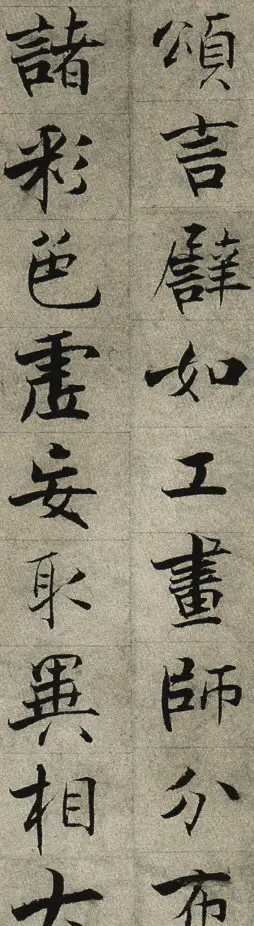 頌言譬如工畫師分布
諸彩色虛妄取異相大